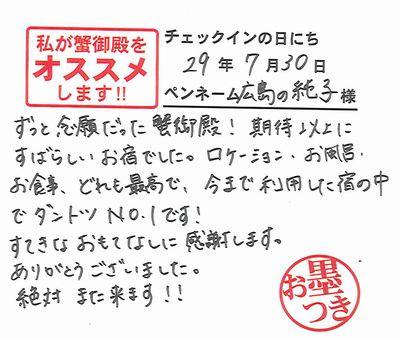 私が蟹御殿を
オススメ
します!!
チェックインの日にち
29年7月30日
ペンネーム広島の純子様
ずっと念願だった蟹御殿！期待以上に
すばらしいお宿でした。ロケーション、お風呂、
お食事、どれも最高で、今まで利用した宿の中
でダントツNO.1です!
すてきなおもてなしに感謝します。
ありがとうございました。
絶対また来ます!!
お墨つき